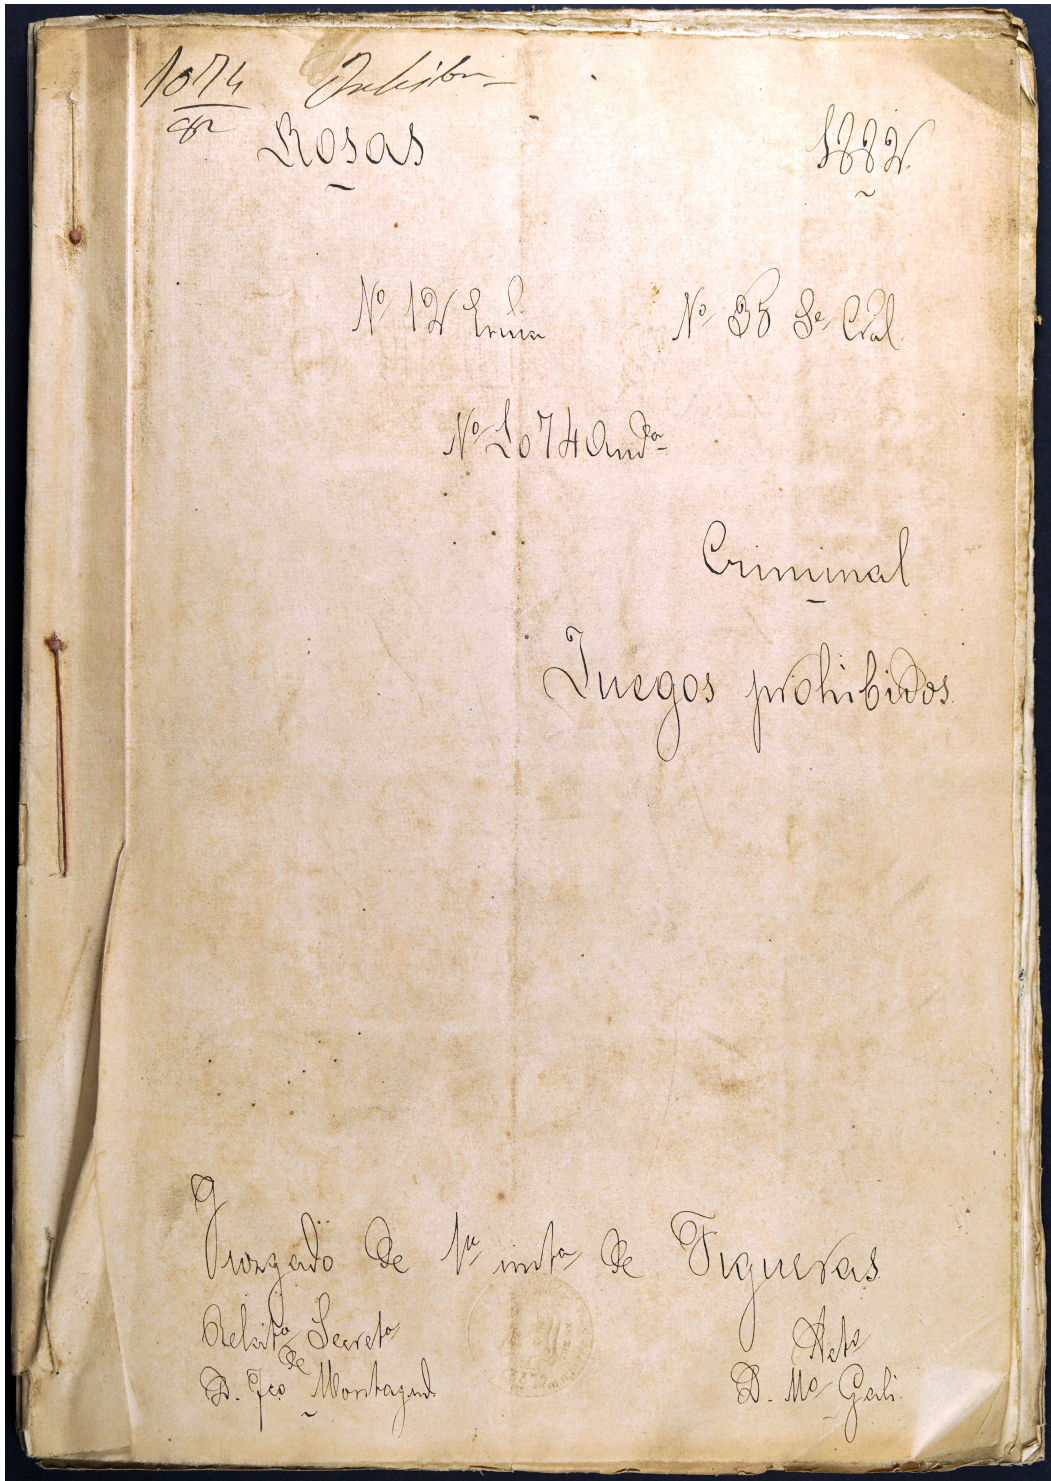 1074
Rosas 1882.
Nº 12 Nº 35 Se Cral.
Nº 1074 Audª
Criminal
Juegos prohibidos.
Juzgado de 1ª instª de Figueras
Relatª Secretª Actº
D. Fco de Montagud D. Mº Gali.